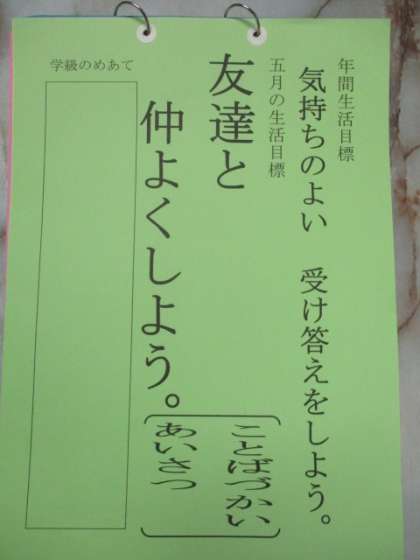 年間生活目標
気持ちのよい　受け答えをしよう。
五月の生活目標
友達と
仲よくしよう。
ことばづかい
あいさつ
学級のめあて